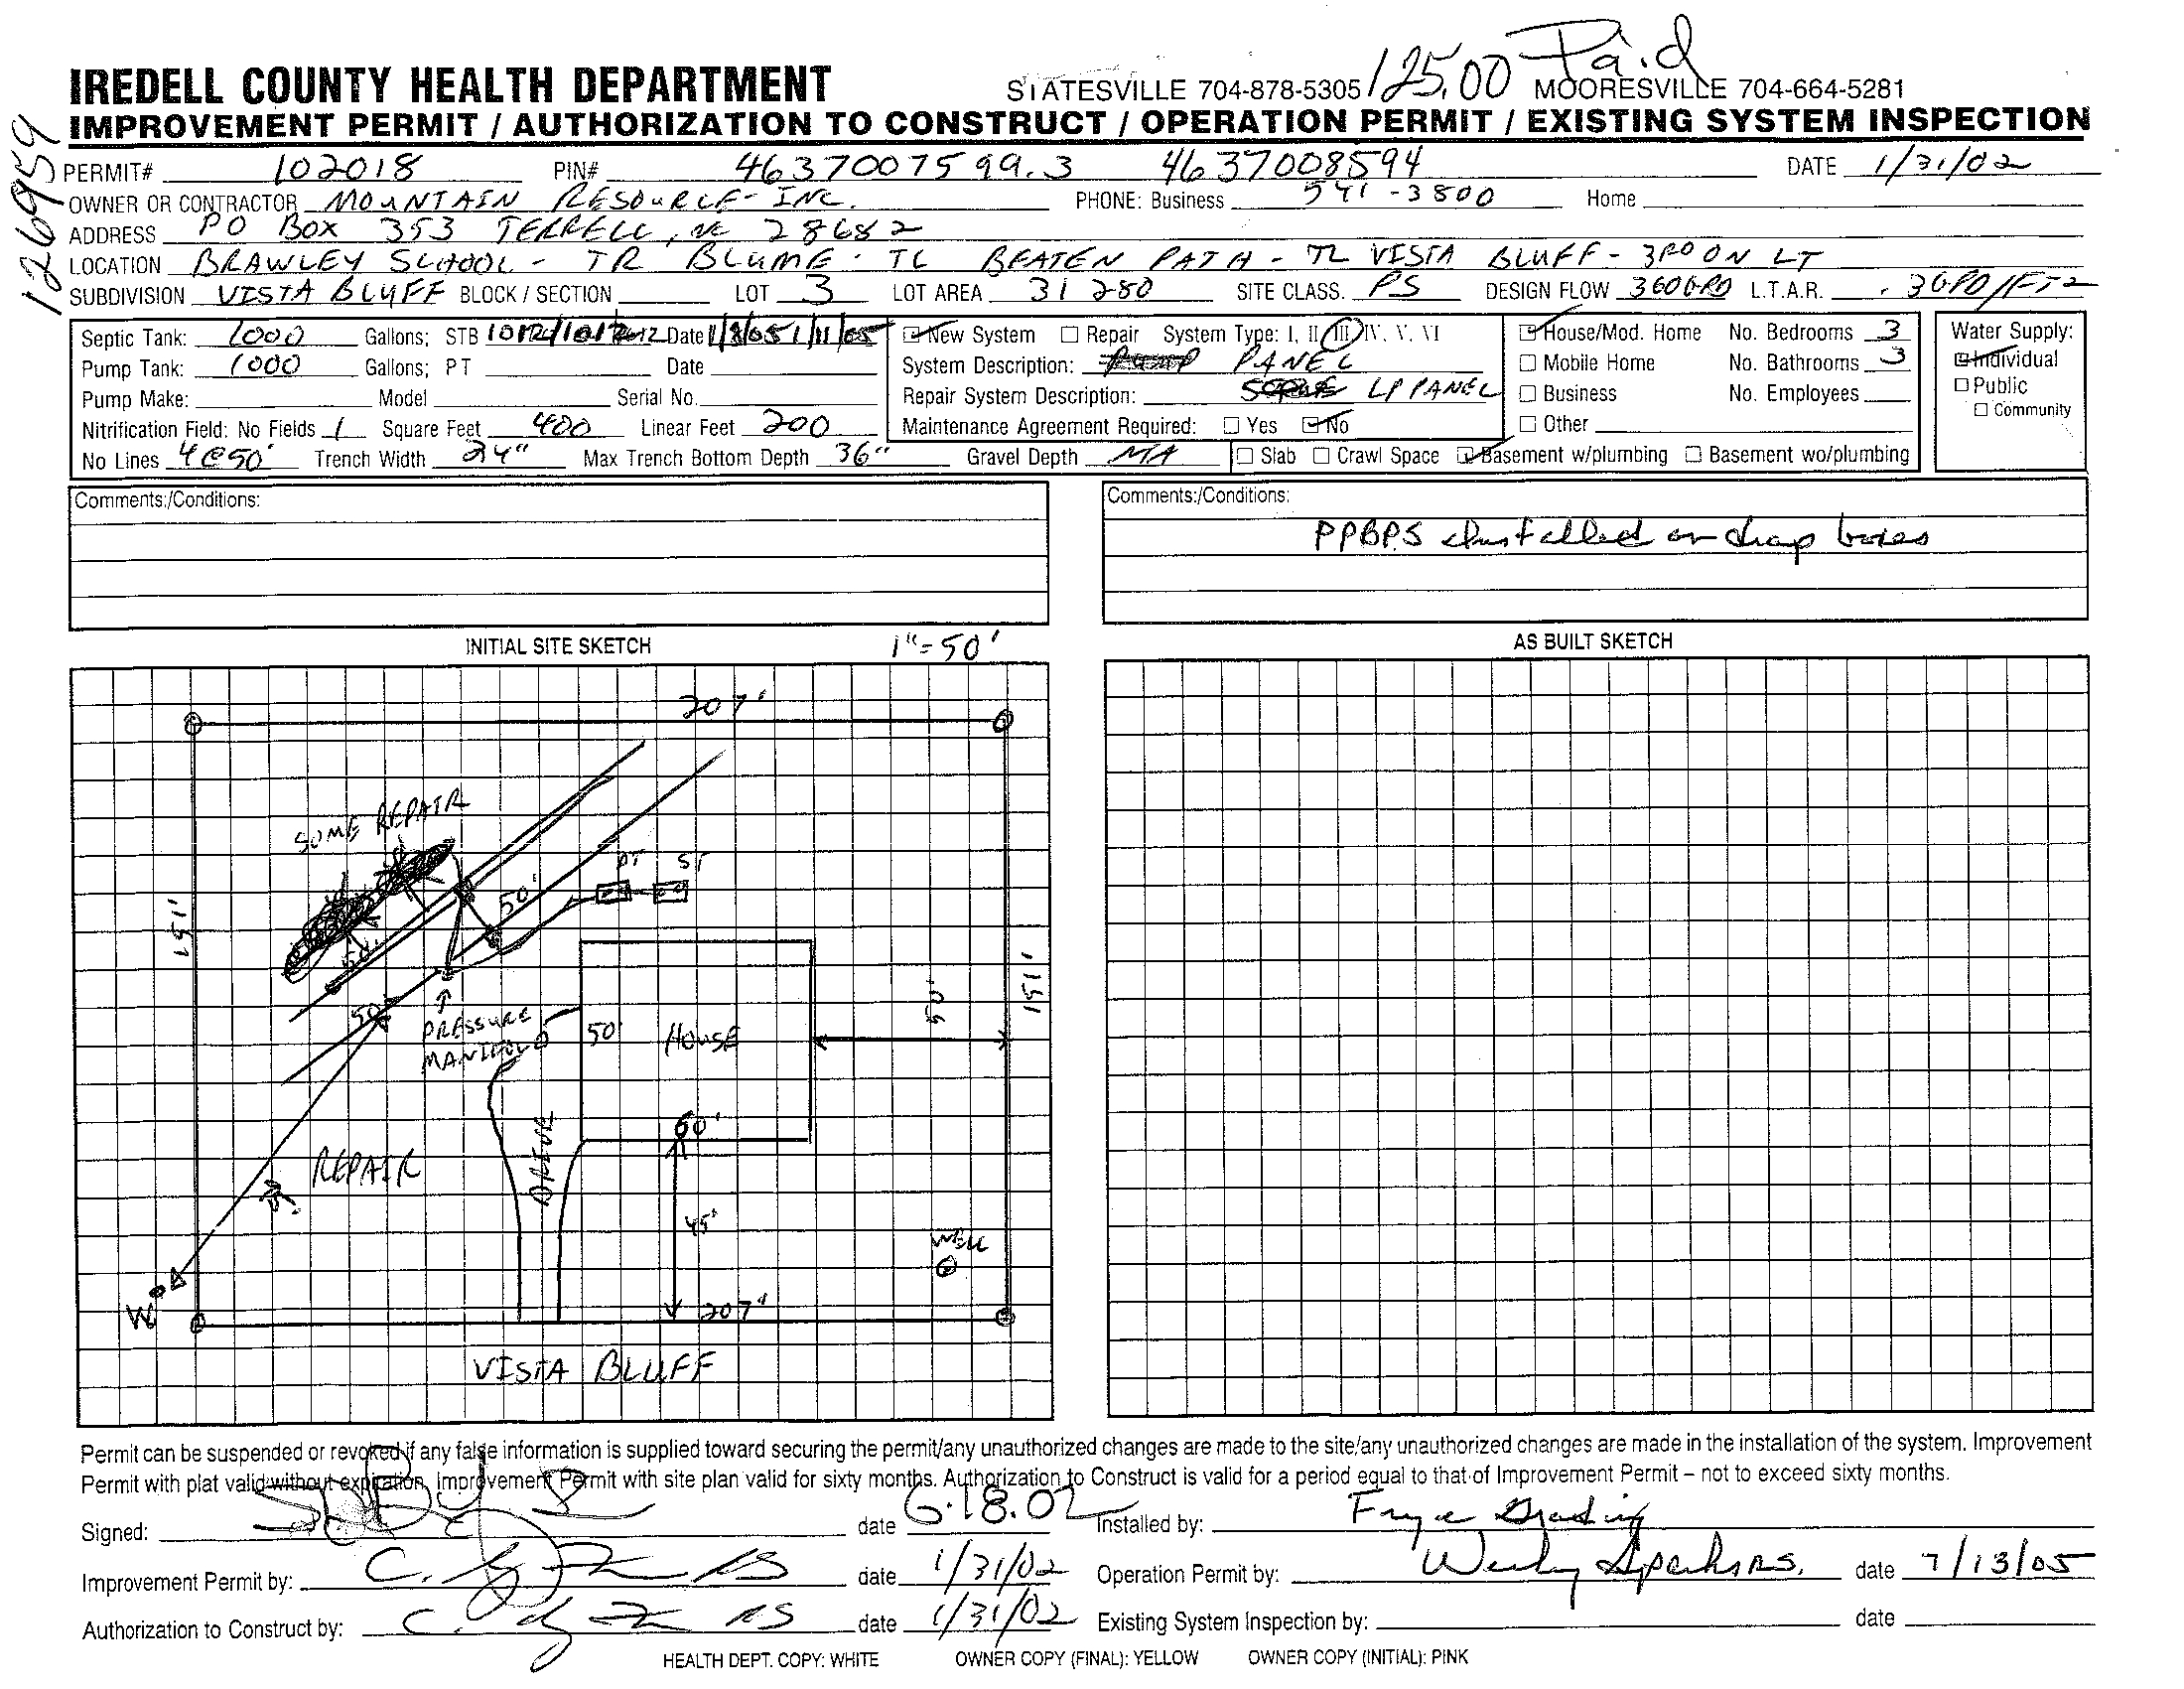 125.00 Paid
IREDELL COUNTY HEALTH DEPARTMENT STATESVILLE 704-878-5305 MOORESVILLE 704-664-5281
IMPROVEMENT PERMIT / AUTHORIZATION TO CONSTRUCT / OPERATION PERMIT / EXISTING SYSTEM INSPECTION
126959
PERMIT# 102018 PIN# 4637007599.3 4637008594 DATE 1/31/02
OWNER OR CONTRACTOR MOUNTAIN RESOURCE-INC. PHONE: Business 541-3800 Home
ADDRESS PO BOX 353 TERRELL, NC 28682
LOCATION BRAWLEY SCHOOL - TR BLUME - TL BEATEN PATH - TL VISTA BLUFF - 3RD ON LT
SUBDIVISION VISTA BLUFF BLOCK / SECTION LOT 3 LOT AREA 31 280 SITE CLASS. PS DESIGN FLOW 360GPD L.T.A.R. .3GPD/FT2
Septic Tank: 1000 Gallons; STB Date New System Repair System Type: I, II, III, IV, V, VI House/Mod. Home No. Bedrooms 3 Water Supply:
Pump Tank: 1000 Gallons; PT Date System Description: PANEL Mobile Home No. Bathrooms 3 Individual
Pump Make: Model Serial No. Repair System Description: LP PANEL Business No. Employees Public
Nitrification Field: No Fields 1 Square Feet 400 Linear Feet 200 Maintenance Agreement Required: Yes No Other Community
No Lines 4@50' Trench Width 24" Max Trench Bottom Depth 36" Gravel Depth NA Slab Crawl Space Basement w/plumbing Basement wo/plumbing
Comments:/Conditions: Comments:/Conditions:
PPBPS Installed on drop boxes
INITIAL SITE SKETCH 1"=50' AS BUILT SKETCH
207'
SOME REPAIR
PT ST
50'
151'
50'
50'
151'
50'
PRESSURE
MANIFOLD
50' HOUSE
60'
DRIVE
REPAIR
45'
WELL
W
207'
VISTA BLUFF
Permit can be suspended or revoked if any false information is supplied toward securing the permit/any unauthorized changes are made to the site/any unauthorized changes are made in the installation of the system. Improvement
Permit with plat valid without expiration, Improvement Permit with site plan valid for sixty months. Authorization to Construct is valid for a period equal to that of Improvement Permit – not to exceed sixty months.
Signed: date 6.18.02 Installed by: Frye Grading
Improvement Permit by: C. RS date 1/31/02 Operation Permit by: Wesley Sparks RS. date 7/13/05
Authorization to Construct by: C. RS date 1/31/02 Existing System Inspection by: date
HEALTH DEPT. COPY: WHITE OWNER COPY (FINAL): YELLOW OWNER COPY (INITIAL): PINK